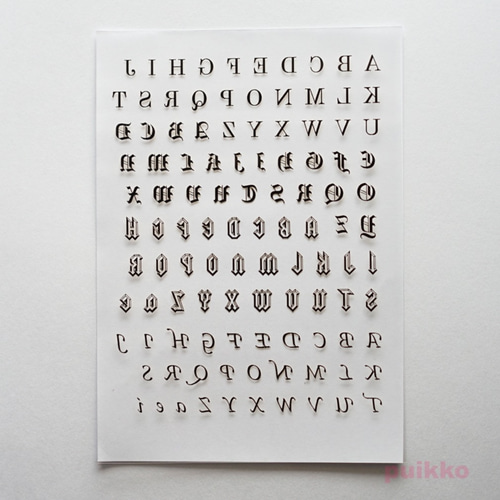 A B C D E F G H I J
K L M N O P Q R S T
U V W X Y Z A B C D
E F G H I J K L M N
O Q R S T U V W X
Y Z A B C D E F G H
I J K L M N O P Q R
S T U V W X Y Z a e
A B C D E F G H I J
K L M N O P Q R S
T U V W X Y Z a e i
puikko